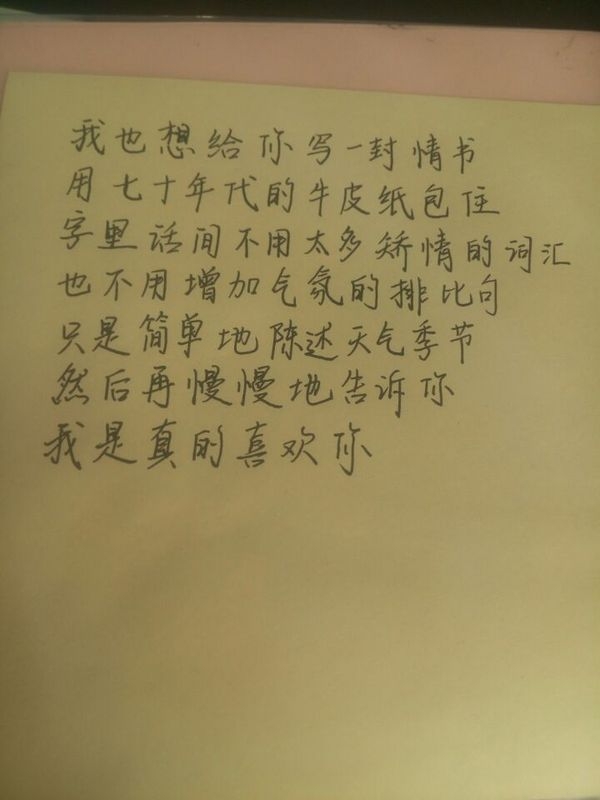 我也想给你写一封情书
用七十年代的牛皮纸包住
字里话间不用太多矫情的词汇
也不用增加气氛的排比句
只是简单地陈述天气季节
然后再慢慢地告诉你
我是真的喜欢你